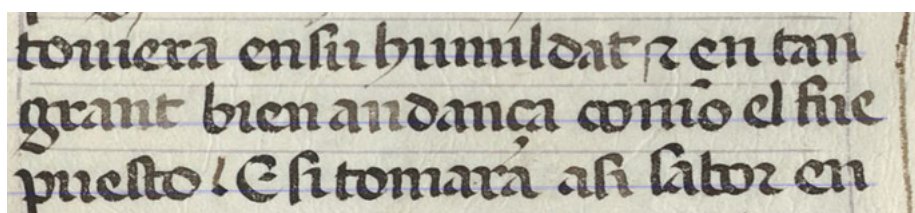 touiera en su humildat ⁊ en tan
grant bien andança com̃o el fue
puesto! E si tomara asi sabor en